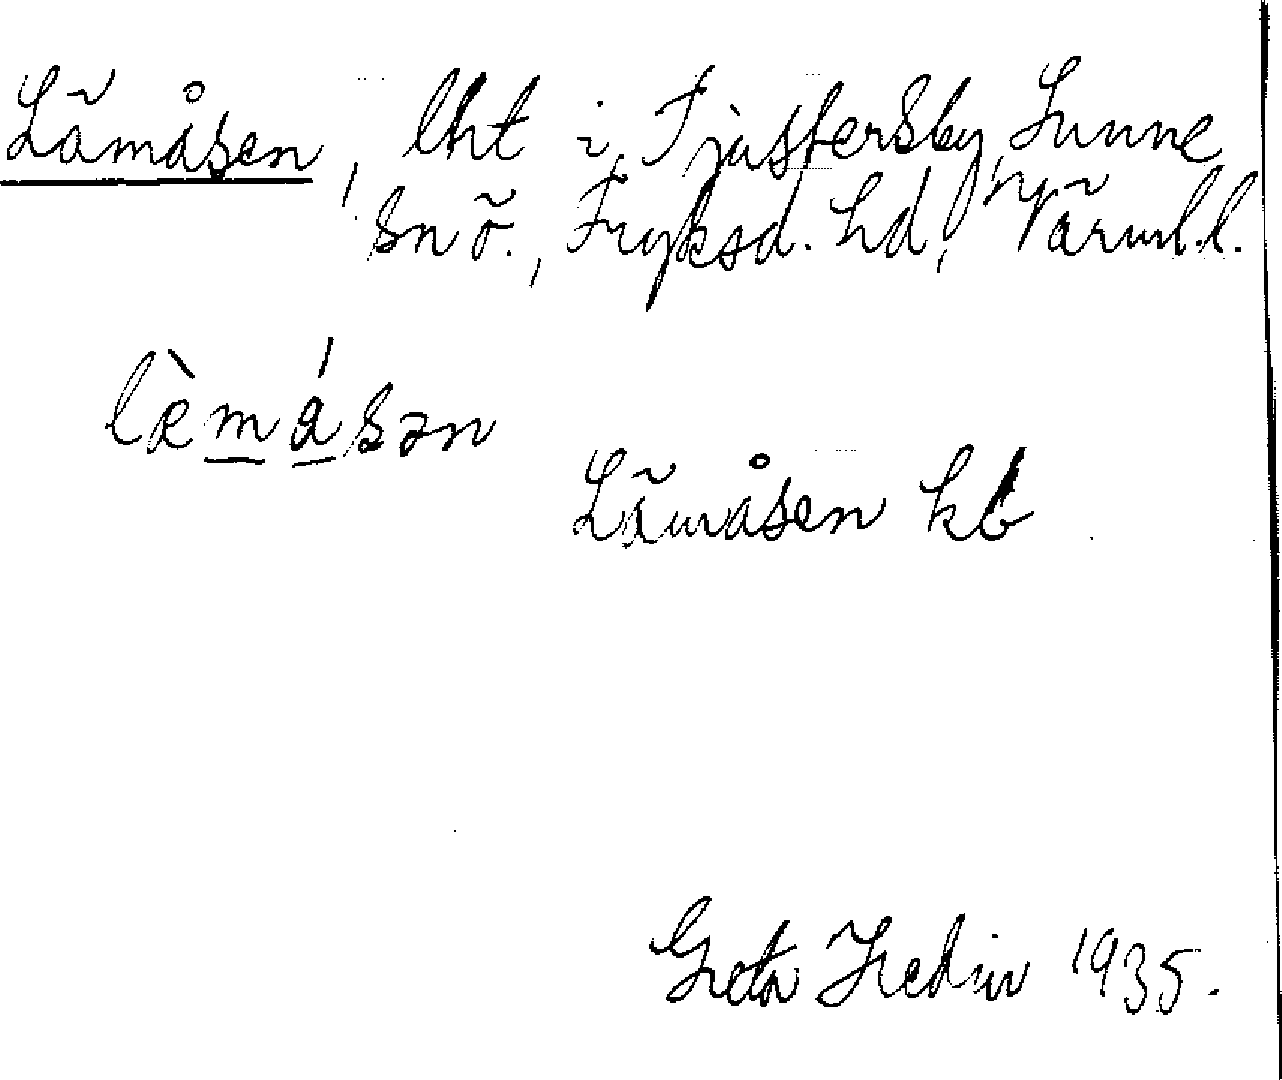 Lämåsen, lht i Fjastersby, Sunne
sn ö., Fryksd. hd, Värml. l.
lὲmásən
Lämåsen kb
Greta Hedin 1935.